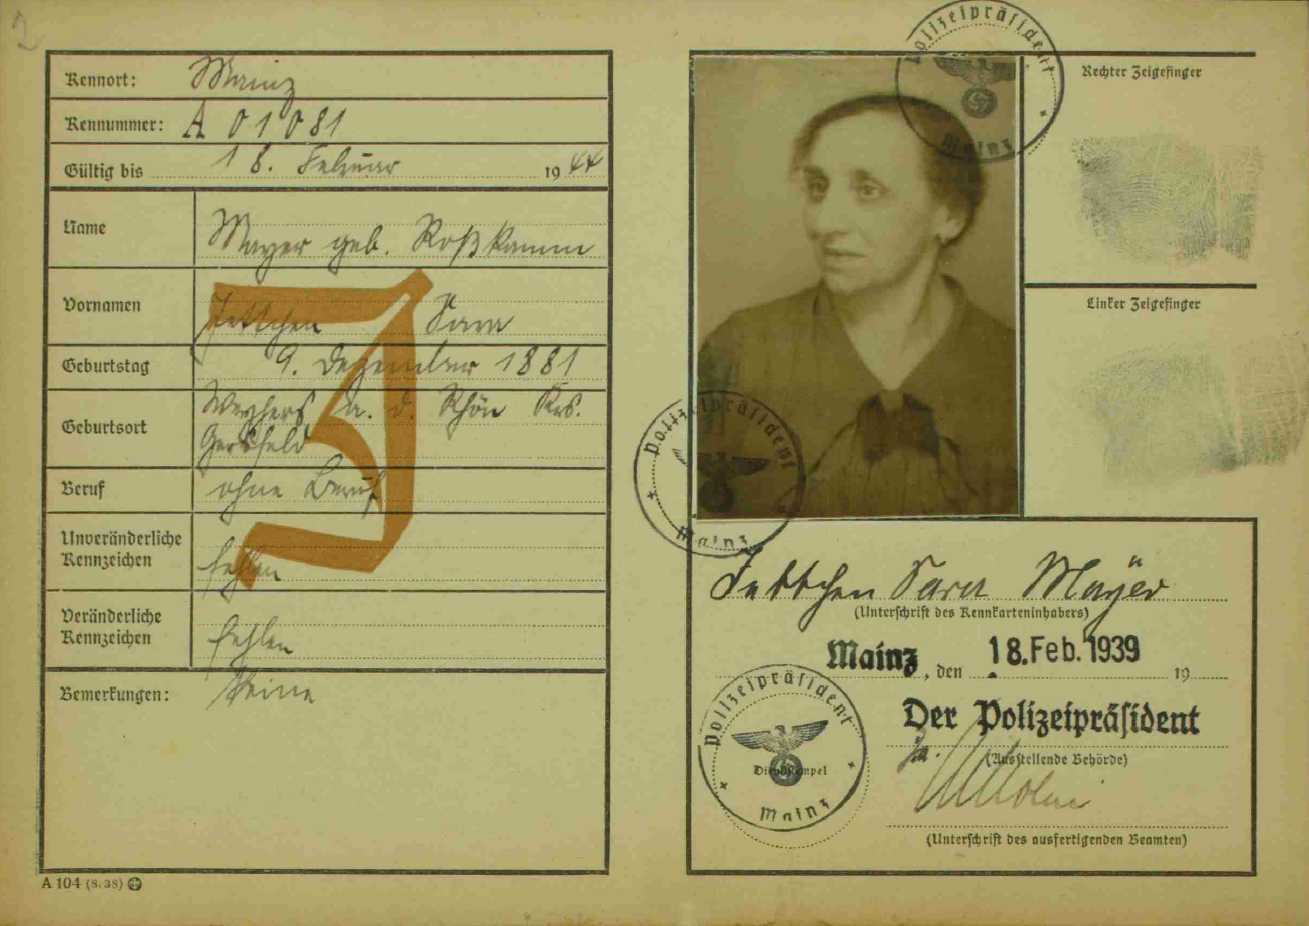 2
Kennort: Mainz
Kennummer: A 01081
Gültig bis 18. Februar 1944
Name Mayer geb. Roßkamm
Vornamen Jettchen Sara
Geburtstag 9. Dezember 1881
Geburtsort Weyhers a. d. Rhön Krs.
Gersfeld
Beruf ohne Beruf
Unveränderliche
Kennzeichen fehlen
Veränderliche
Kennzeichen fehlen
Bemerkungen: Keine
J
A 104 (8. 38)
Polizeipräsident
Mainz
Rechter Zeigefinger
Linker Zeigefinger
Polizeipräsident
Mainz
Jettchen Sara Mayer
(Unterschrift des Kennkarteninhabers)
Mainz, den 18. Feb. 1939 19
Der Polizeipräsident
(Ausstellende Behörde)
Polizeipräsident
Dienststempel
Mainz
(Unterschrift des ausfertigenden Beamten)